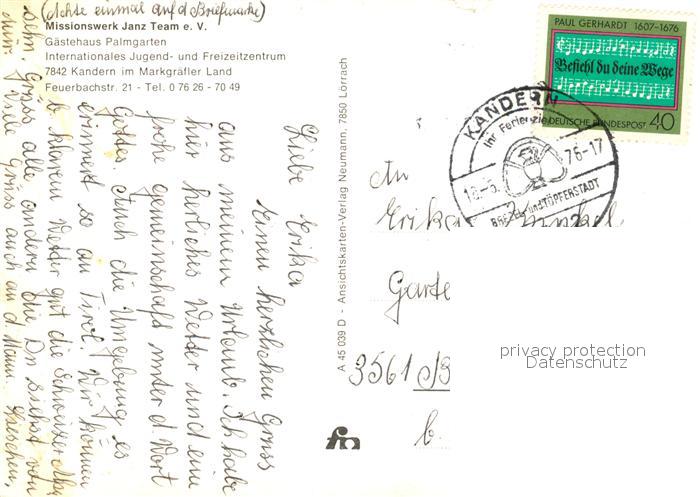 (Achte einmal auf d Briefmarke)
Missionswerk Janz Team e. V.
Gästehaus Palmgarten
Internationales Jugend- und Freizeitzentrum
7842 Kandern im Markgräfler Land
Feuerbachstr. 21 - Tel. 0 76 26 - 70 49
Liebe Erika
Einen herzlichen Gruss
aus meinem Urlaub. Ich habe
hier herliches Wetter und eine
frohe gemeinschaft unter d. Wort
Gottes. Auch die Umgebung es
erinnert so an Tirol. Wir können
b klarem Wetter gut die Schweizer Alp.
sehn. Grüss alle andern die Du siehst von
mir. Viele Grüss auch an d. Mann.
A 45 039 D - Ansichtskarten-Verlag Neumann, 7850 Lörrach
PAUL GERHARDT 1607-1676
Befiehl du deine Wege
DEUTSCHE BUNDESPOST 40
KANDERN
Ihr Ferienzie
18.-5. 76-17
BREZEL- und TÖPFERSTADT
An
Erika Kunkel
Garte
3561
b.
privacy protection
Datenschutz